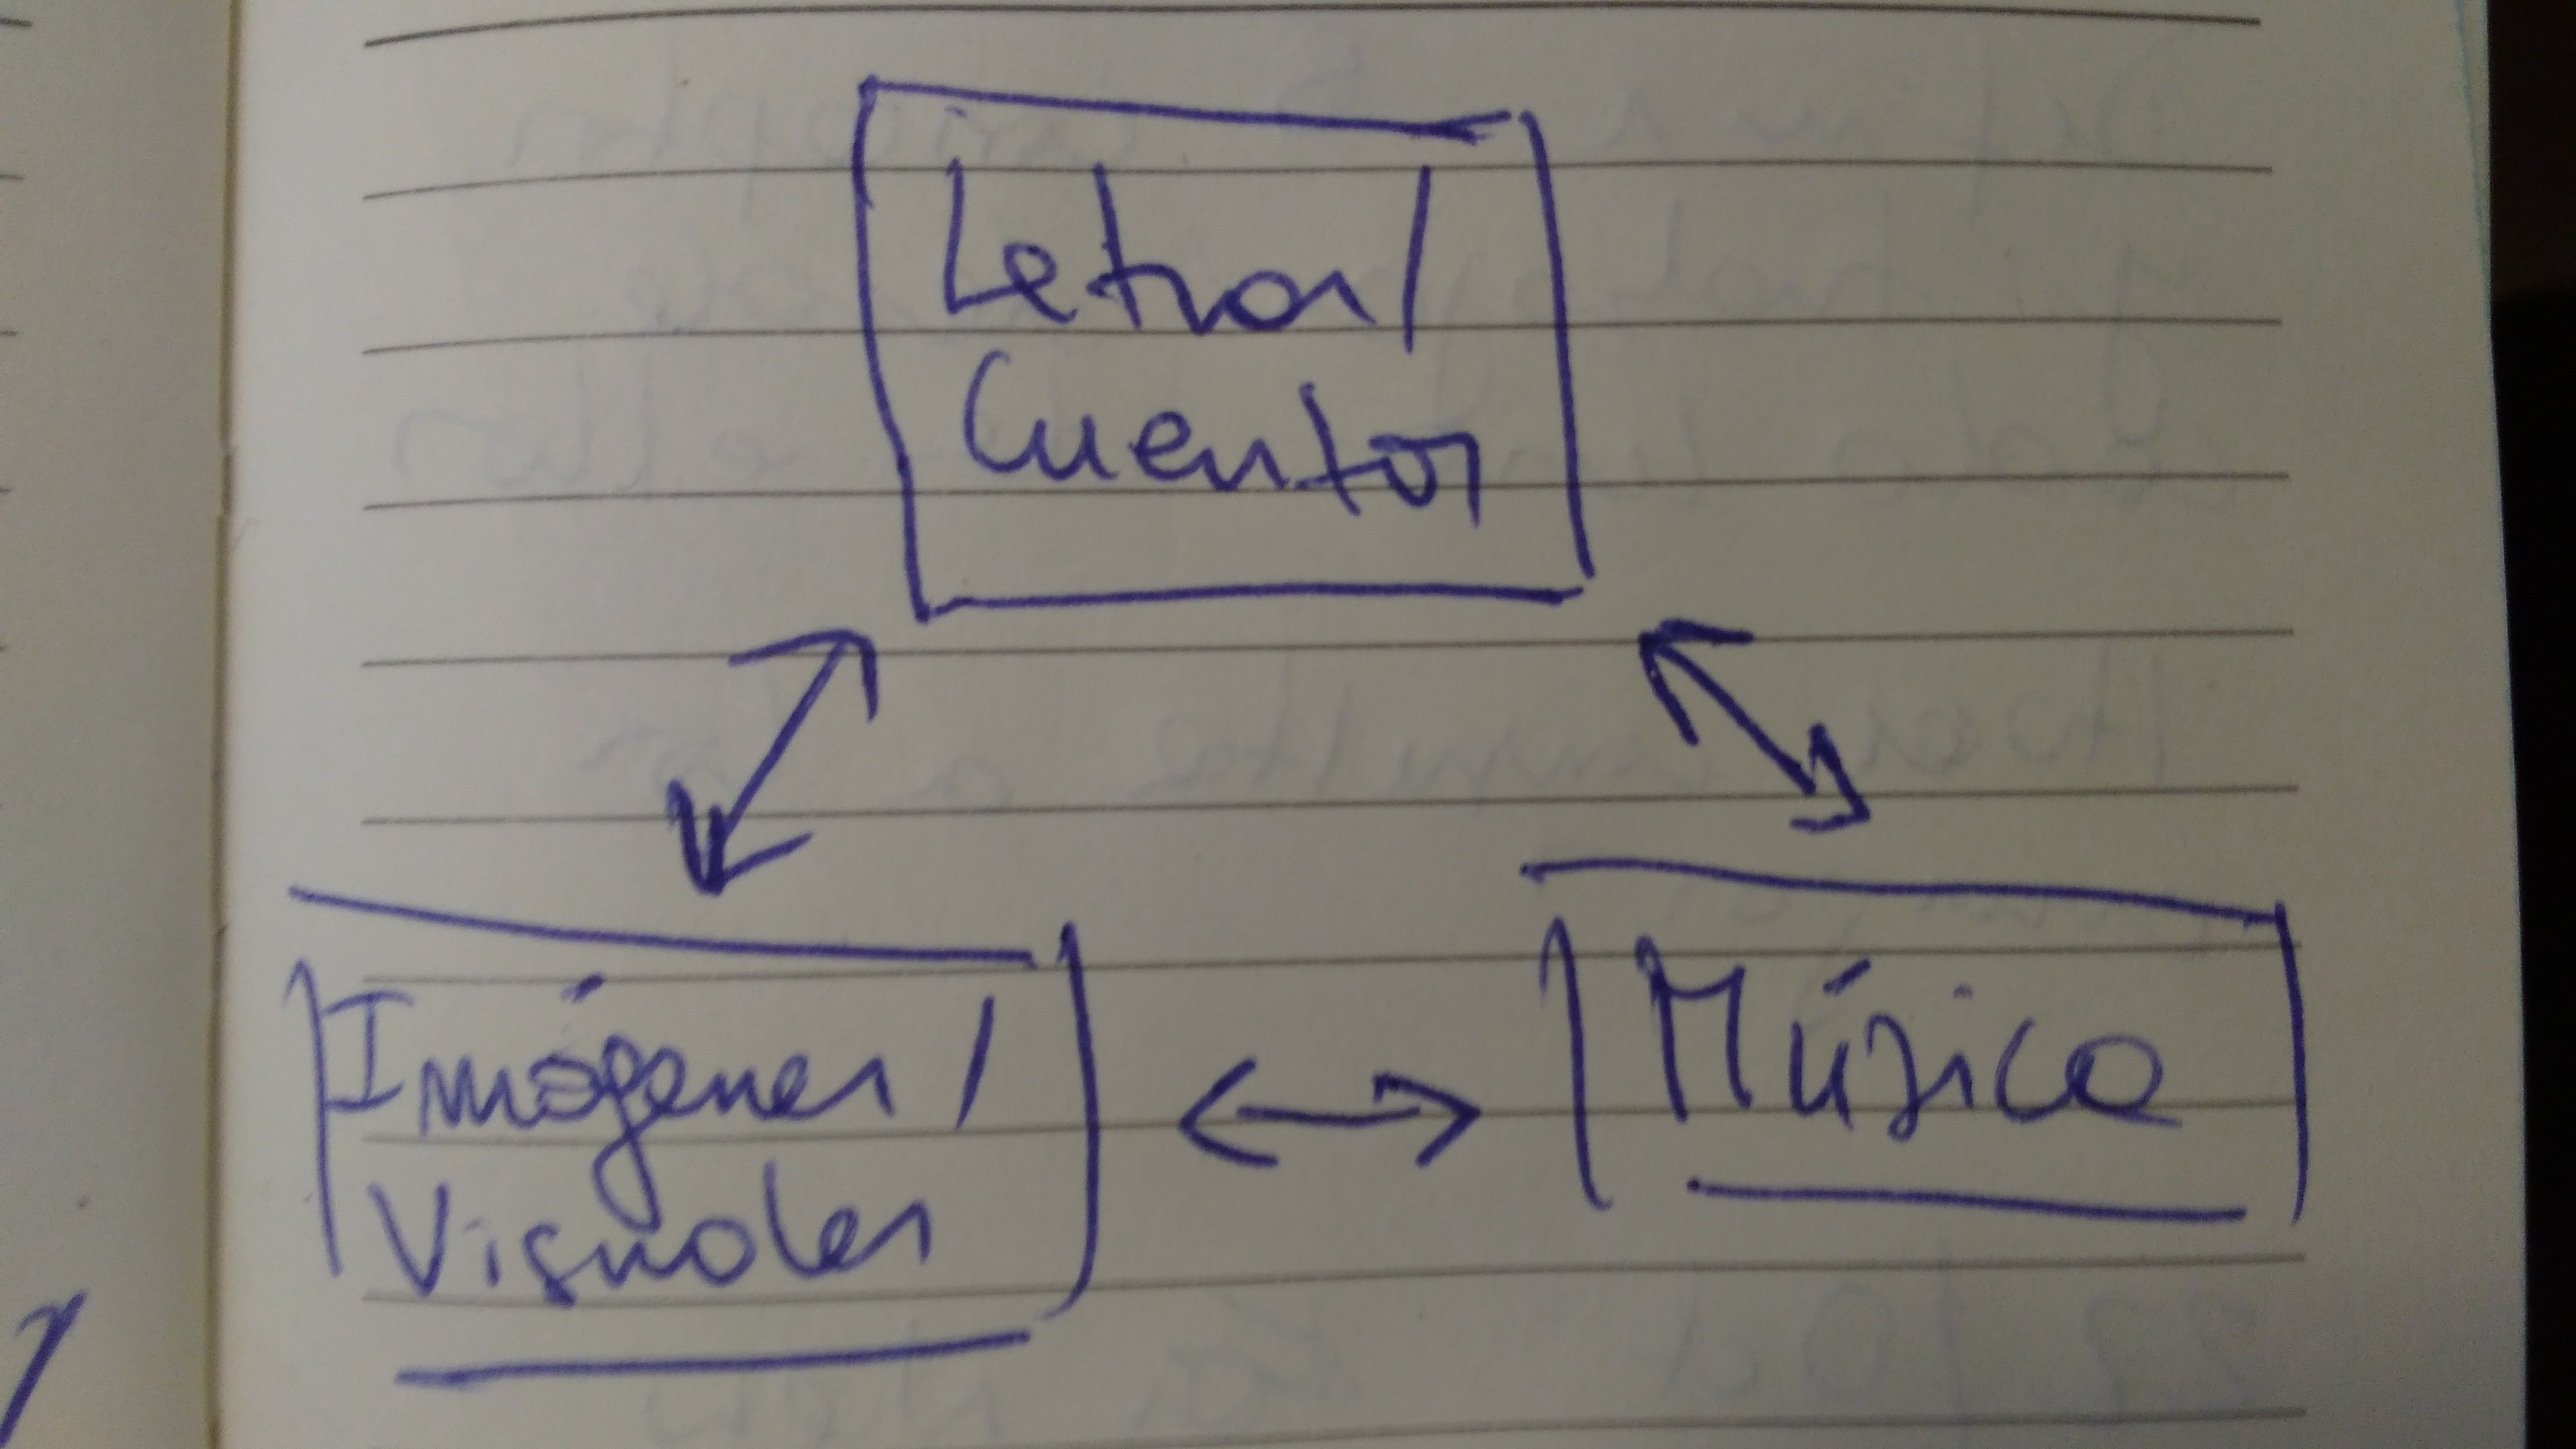 Letras/
Cuentos
Imágenes/
Visuales
Música